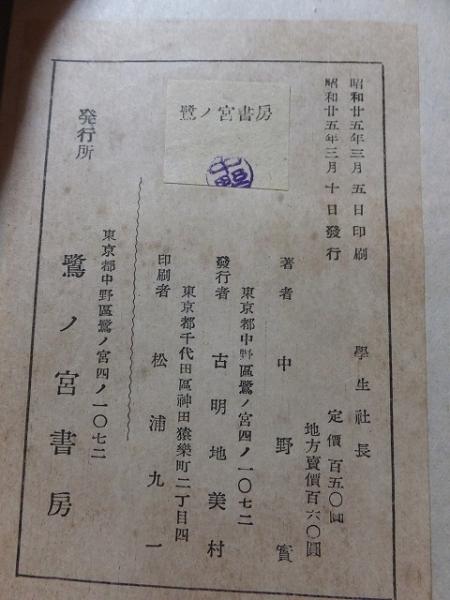 昭和廿五年三月五日印刷
昭和廿五年三月十日發行
學生社長
定價 百五〇圓
地方賣價百六〇圓
鷺ノ宮書房
著者 中野實
東京都中野區鷺ノ宮四ノ一〇七二
發行者 古明地美村
東京都千代田區神田猿樂町二丁目四
印刷者 松浦九一
東京都中野區鷺ノ宮四ノ一〇七二
発行所 鷺ノ宮書房